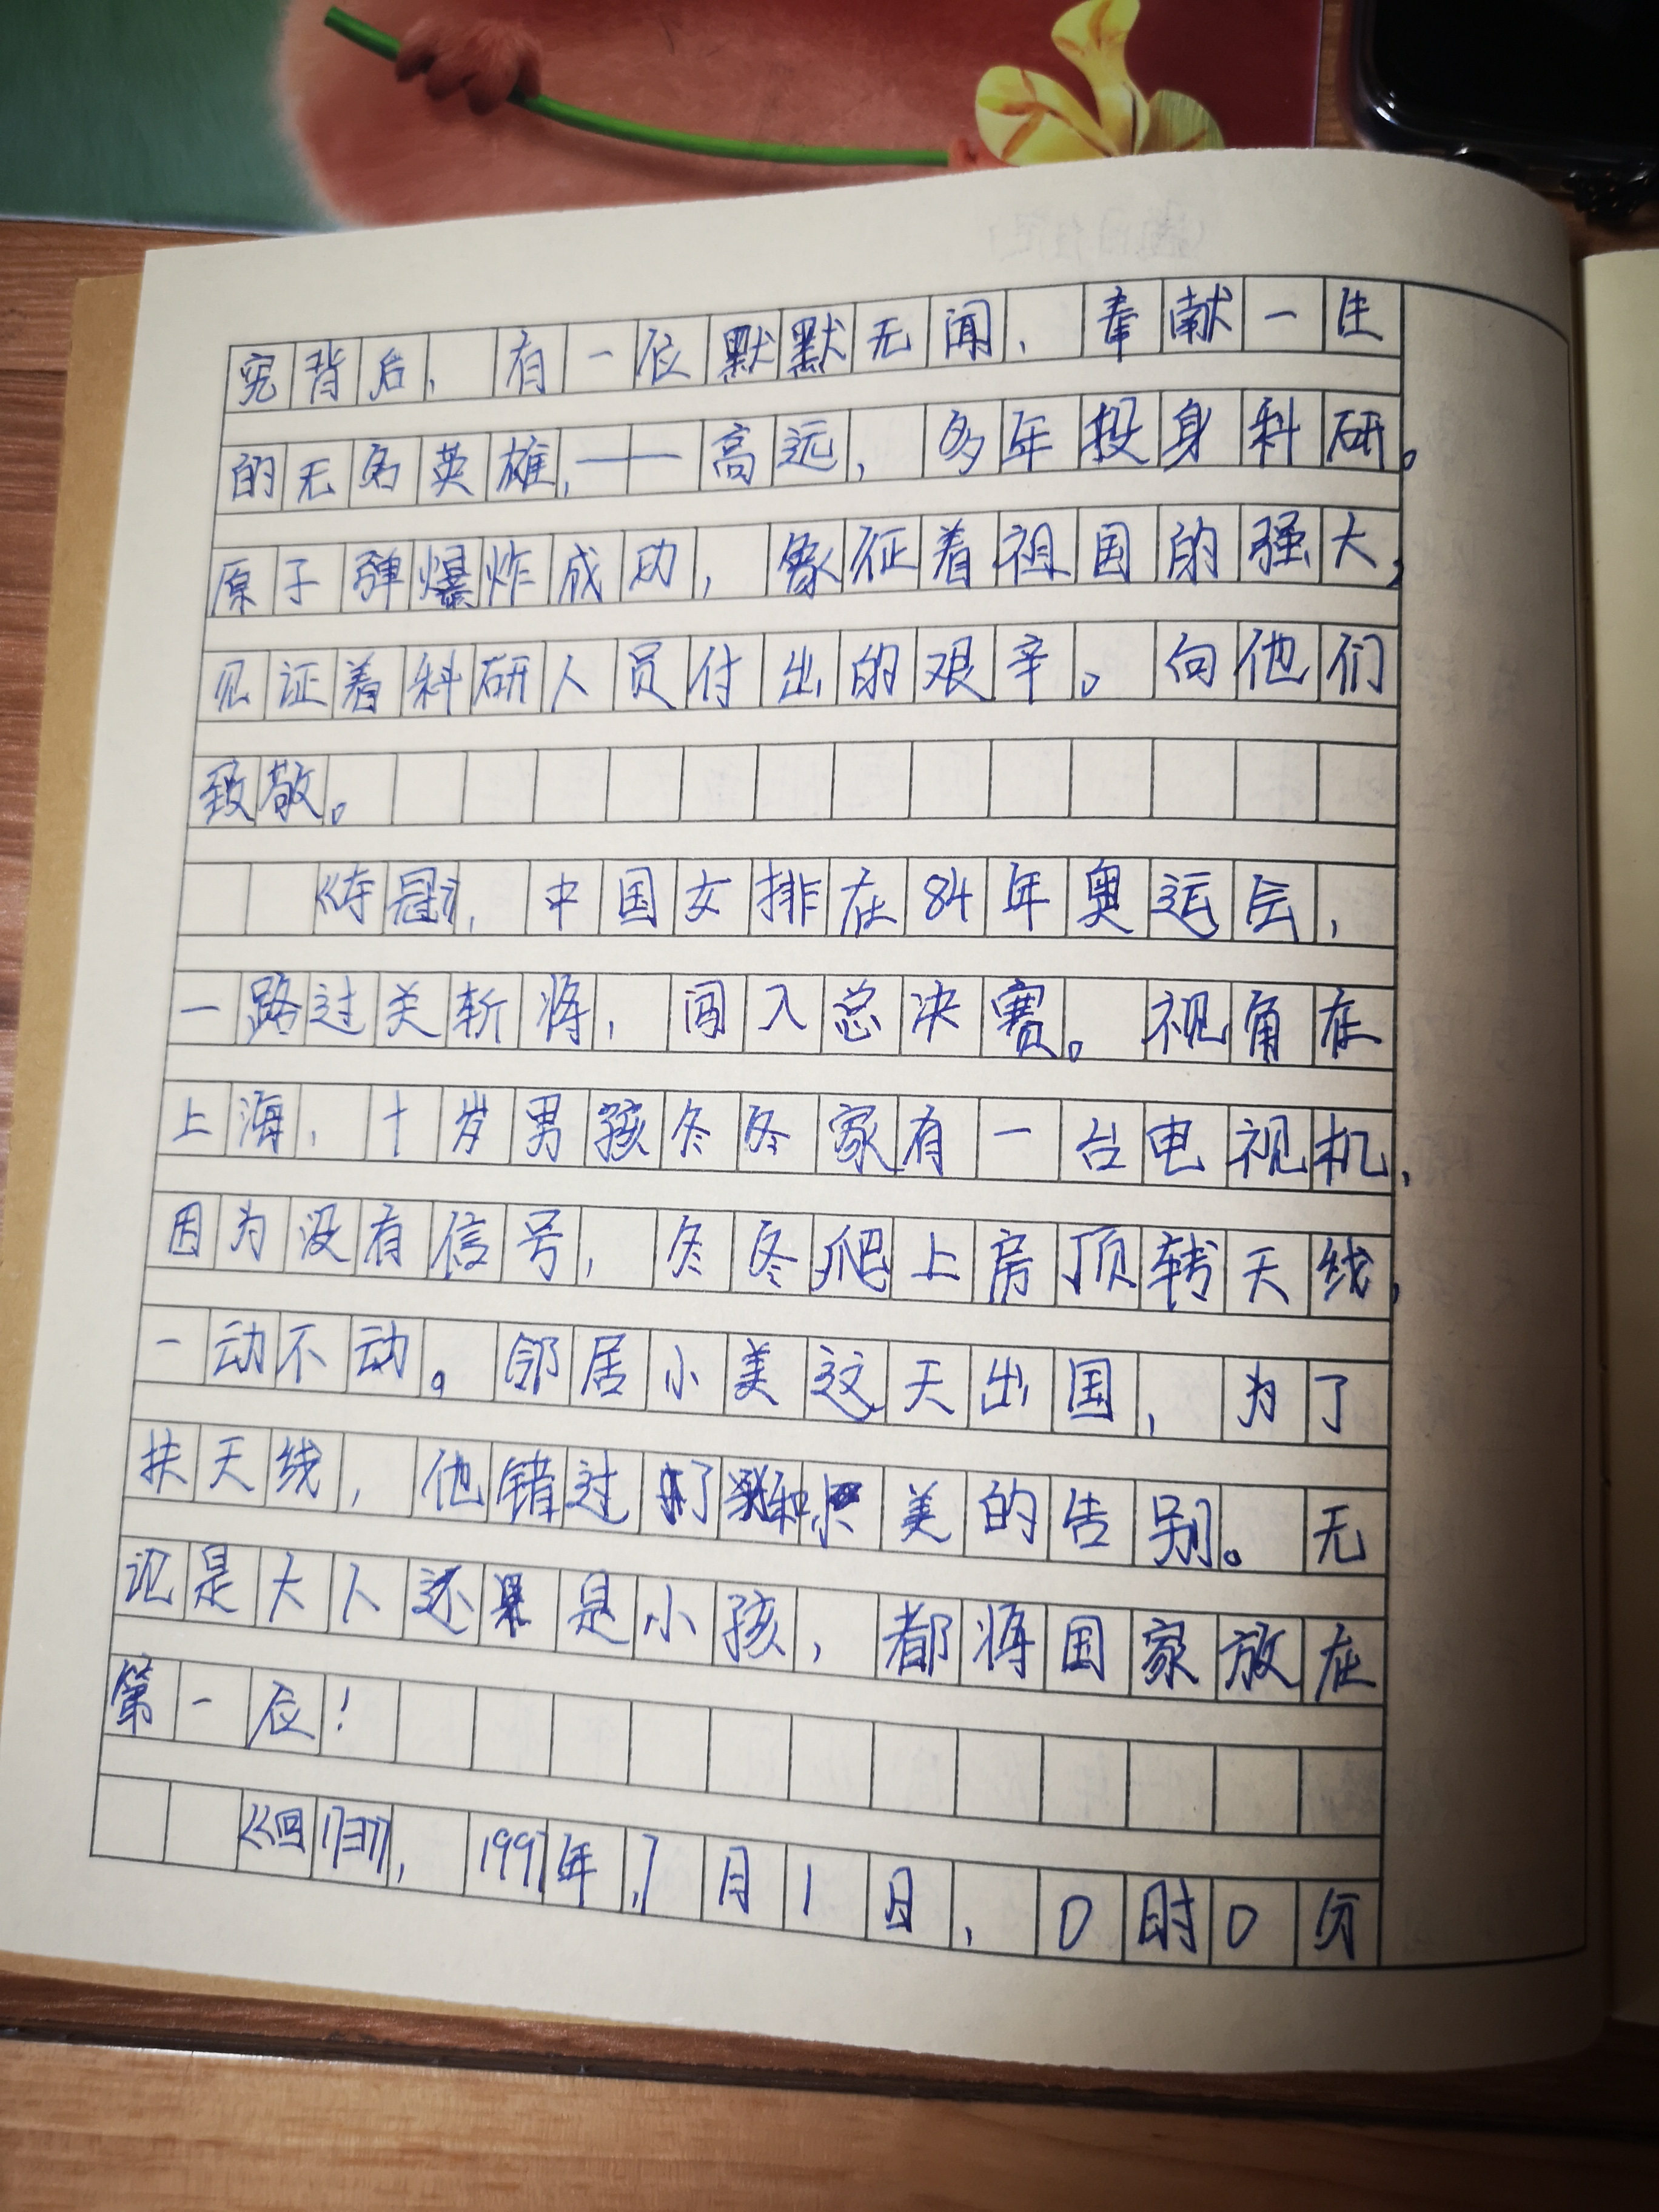 究背后，有一位默默无闻，奉献一生
的无名英雄，——高远，多年投身科研。
原子弹爆炸成功，象征着祖国的强大，
见证着科研人员付出的艰辛。向他们
致敬。
《夺冠》，中国女排在84年奥运会，
一路过关斩将，闯入总决赛。视角在
上海，十岁男孩冬冬家有一台电视机，
因为没有信号，冬冬爬上房顶转天线，
一动不动。邻居小美这天出国，为了
扶天线，他错过了和小美的告别。无
论是大人还是小孩，都将国家放在
第一位！
《回归》，1997年，7月1日，0时0分